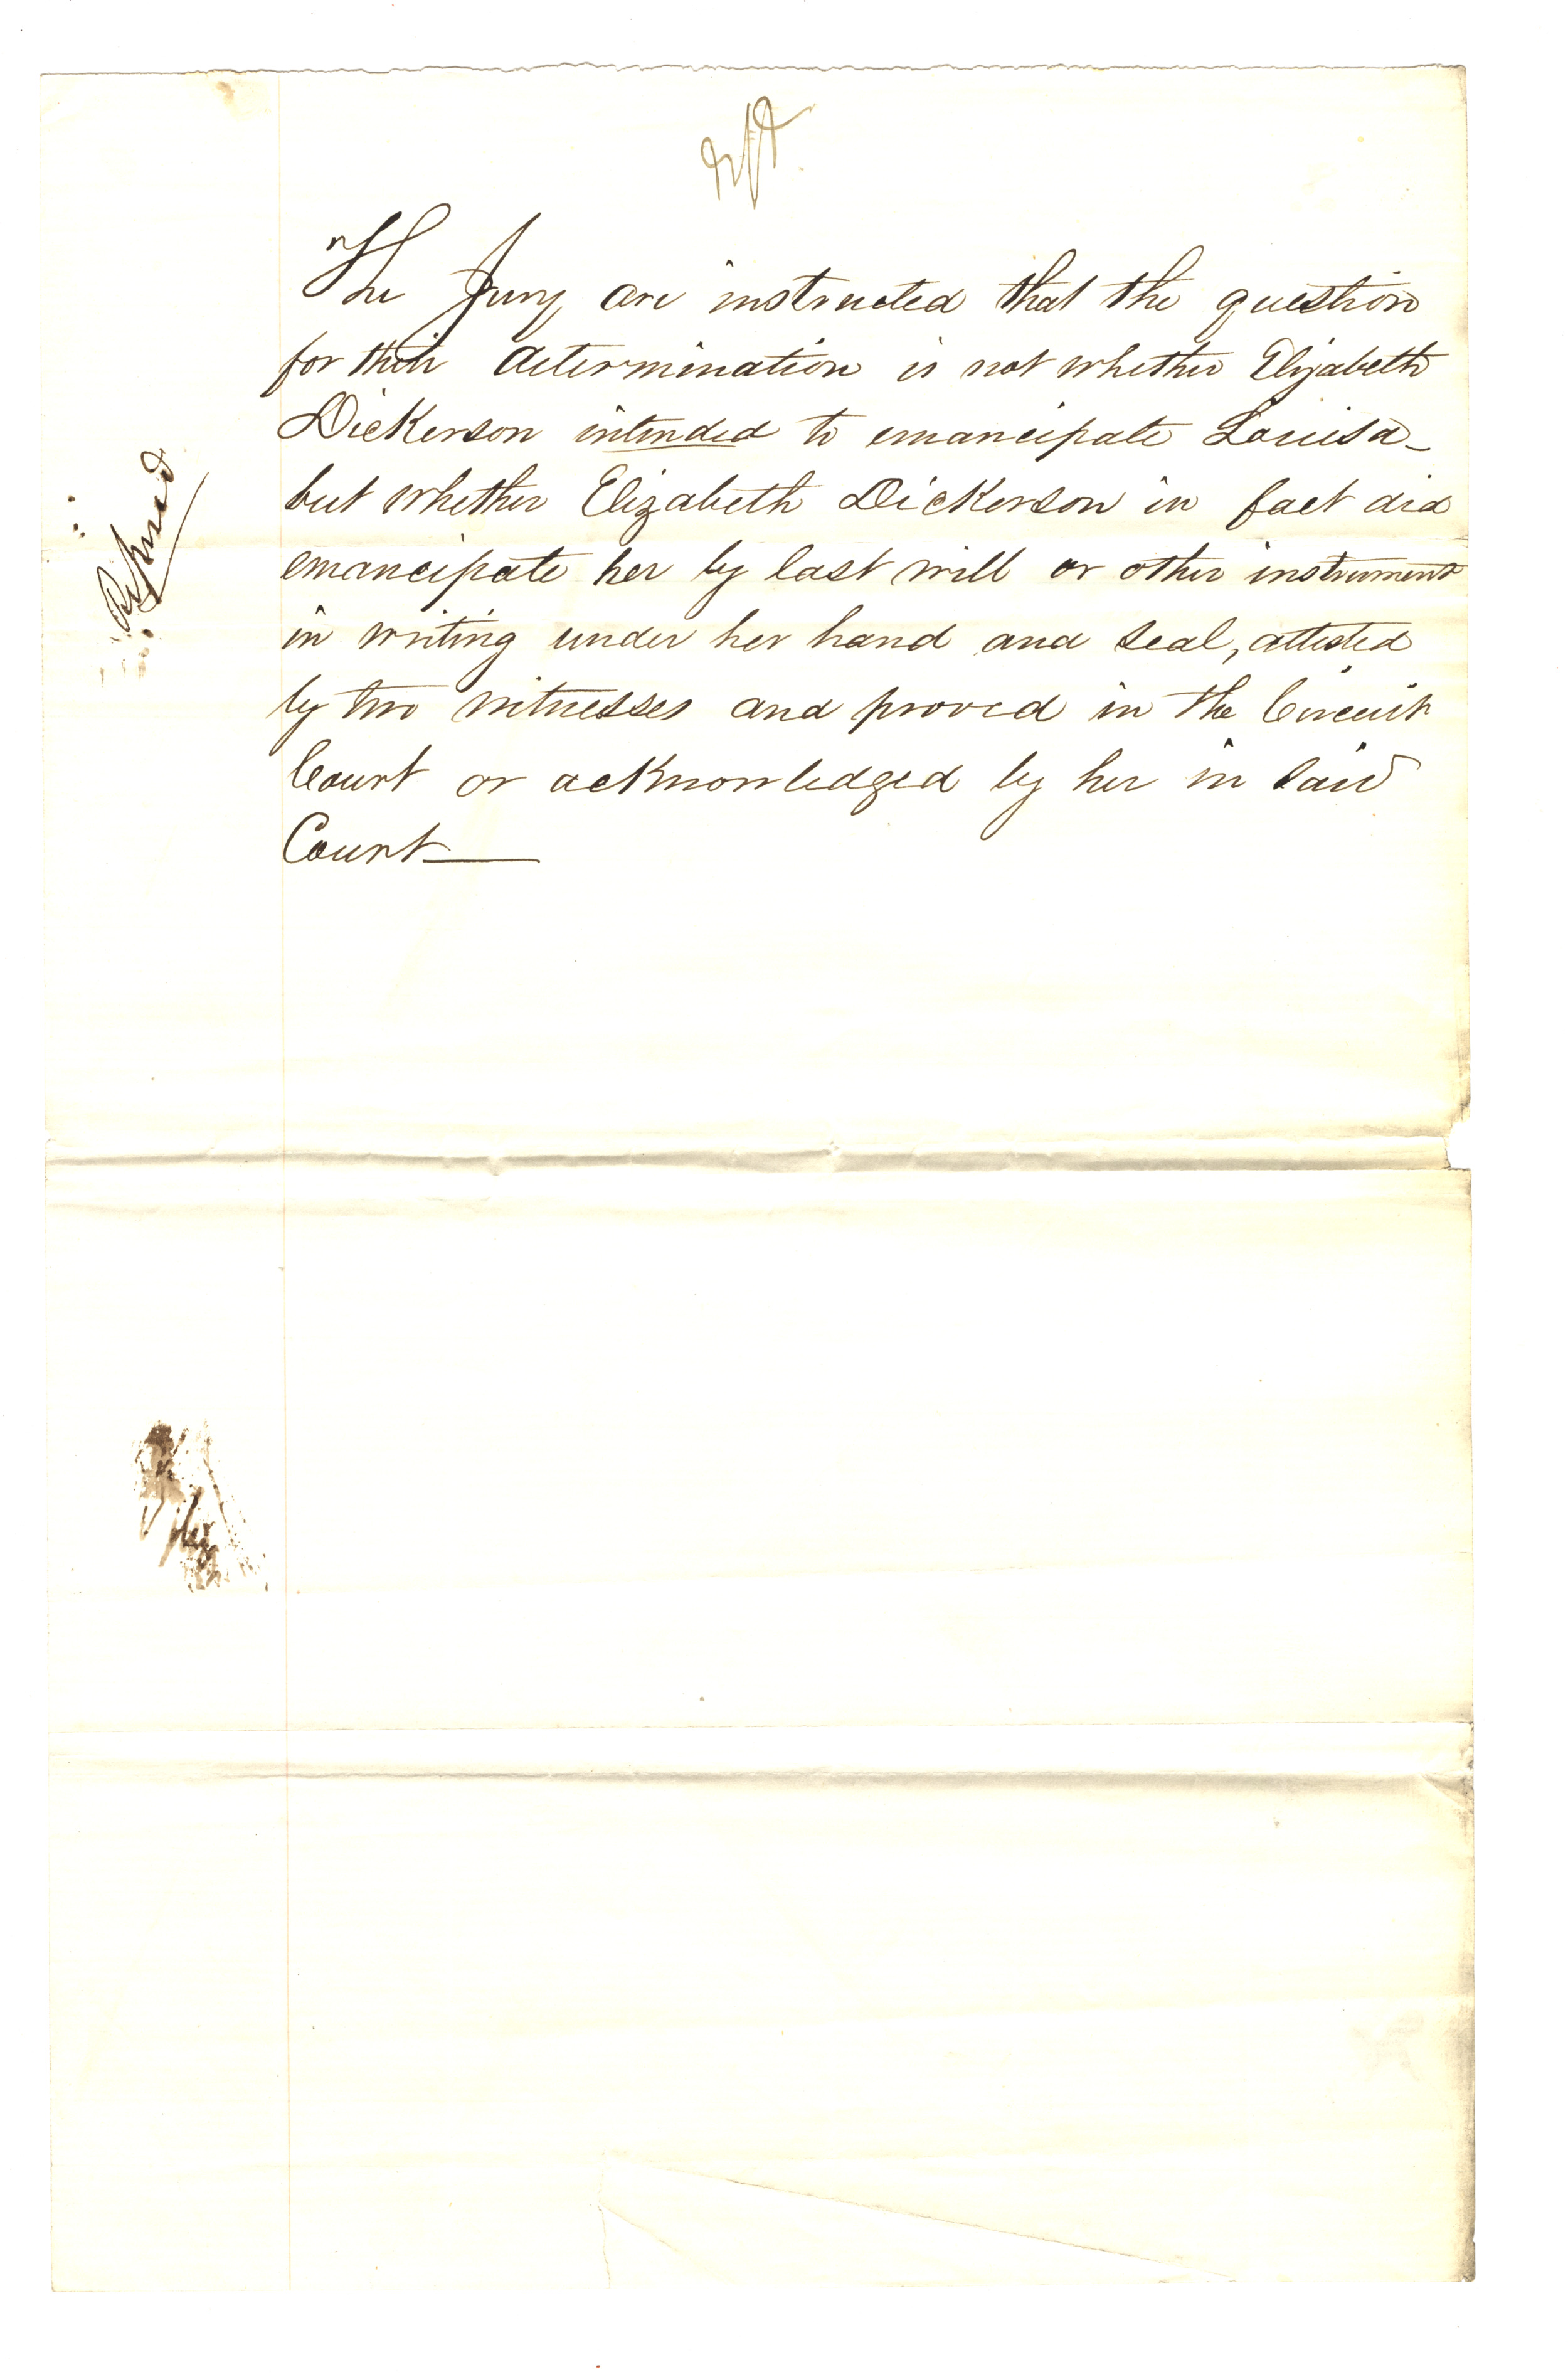 dft.
The Jury are instructed that the question
for their determination is not whether Elizabeth
Dickerson intended to emancipate Louisa –
but whether Elizabeth Dickerson in fact did
emancipate her by last will or other instrument
in writing under her hand and seal, attested
by two witnesses and proved in the Circuit
Court or acknowledged by her in said
Court ——
Refused